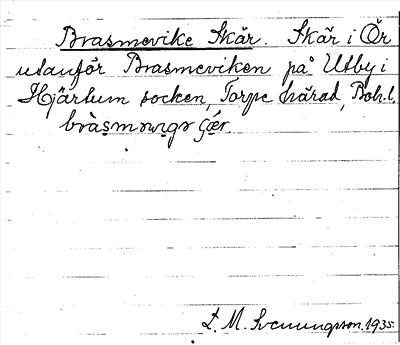 Brasmevike Skär. Skär i Ör
utanför Brasmeviken på Utby i
Hjärtum socken, Torpe härad, Boh.l.
L. M. Svenungsson. 1935.